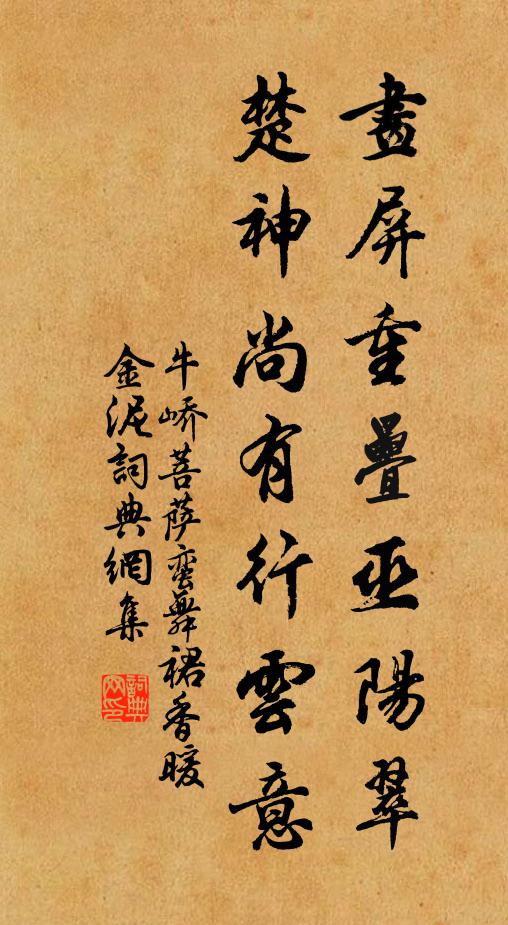 畫屏重疊巫陽翠
楚神尚有行雲意
牛嶠菩薩蠻舞裙香暖
金泥詞典網集
詞典網印